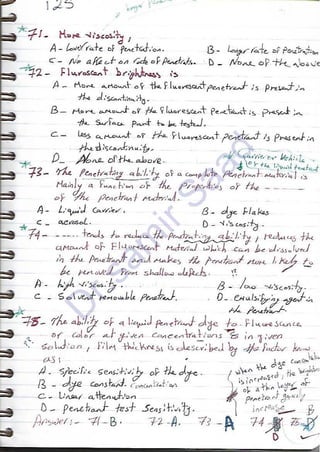 125
71- More viscosity,
A- lower rate of penetration. B- longer rate of penetration
C- No affect on rate of penetration. D- None of the above
72- Fluroscent brightness is
A- More amount of the fluorescent penetrant is present in
the discontinuity.
B- More amount of the fluorescent Penetrant is present in
the Surface point to be tested.
C- less amount of the Fluorescent penetrant is Present in
the discontinuity.
D- None of the above.
Carrier or Vehicle
of the liquid penetrant
73- The Penetrating ability of a complete Penetrant material is
Mainly a function of the Properties of the ------
of the Penetrant material.
A- Liquid Carrier. B- dye flakes
C- aerosol. D- viscosity.
74- ------ tends to reduce the penetrating ability, reduces the
amount of Fluorescent material which can be dissolved
in the Penetrant and makes the penetrant more likely to
be removed from shallow defects.
A- high viscosity. B- low viscosity.
C- Solvent removable Penetrant. D- emulsifying agent in
the Penetrant
75- The ability of a liquid penetrant dye to Fluorescence
or color at given concentrations & in given
solution, film thickness is described by the factor know
as:
A- specific sensitivity of the dye.
B- dye constant concentration
C- Linear attenuation
D- Penetrant test Sensitivity.
when the dye concentration
is increased, the brightness
of a thin layer of
penetrant generally
increase
Answer:- 71-B. 72-A. 73-A 74-B 75-D
D B
Samir Saad